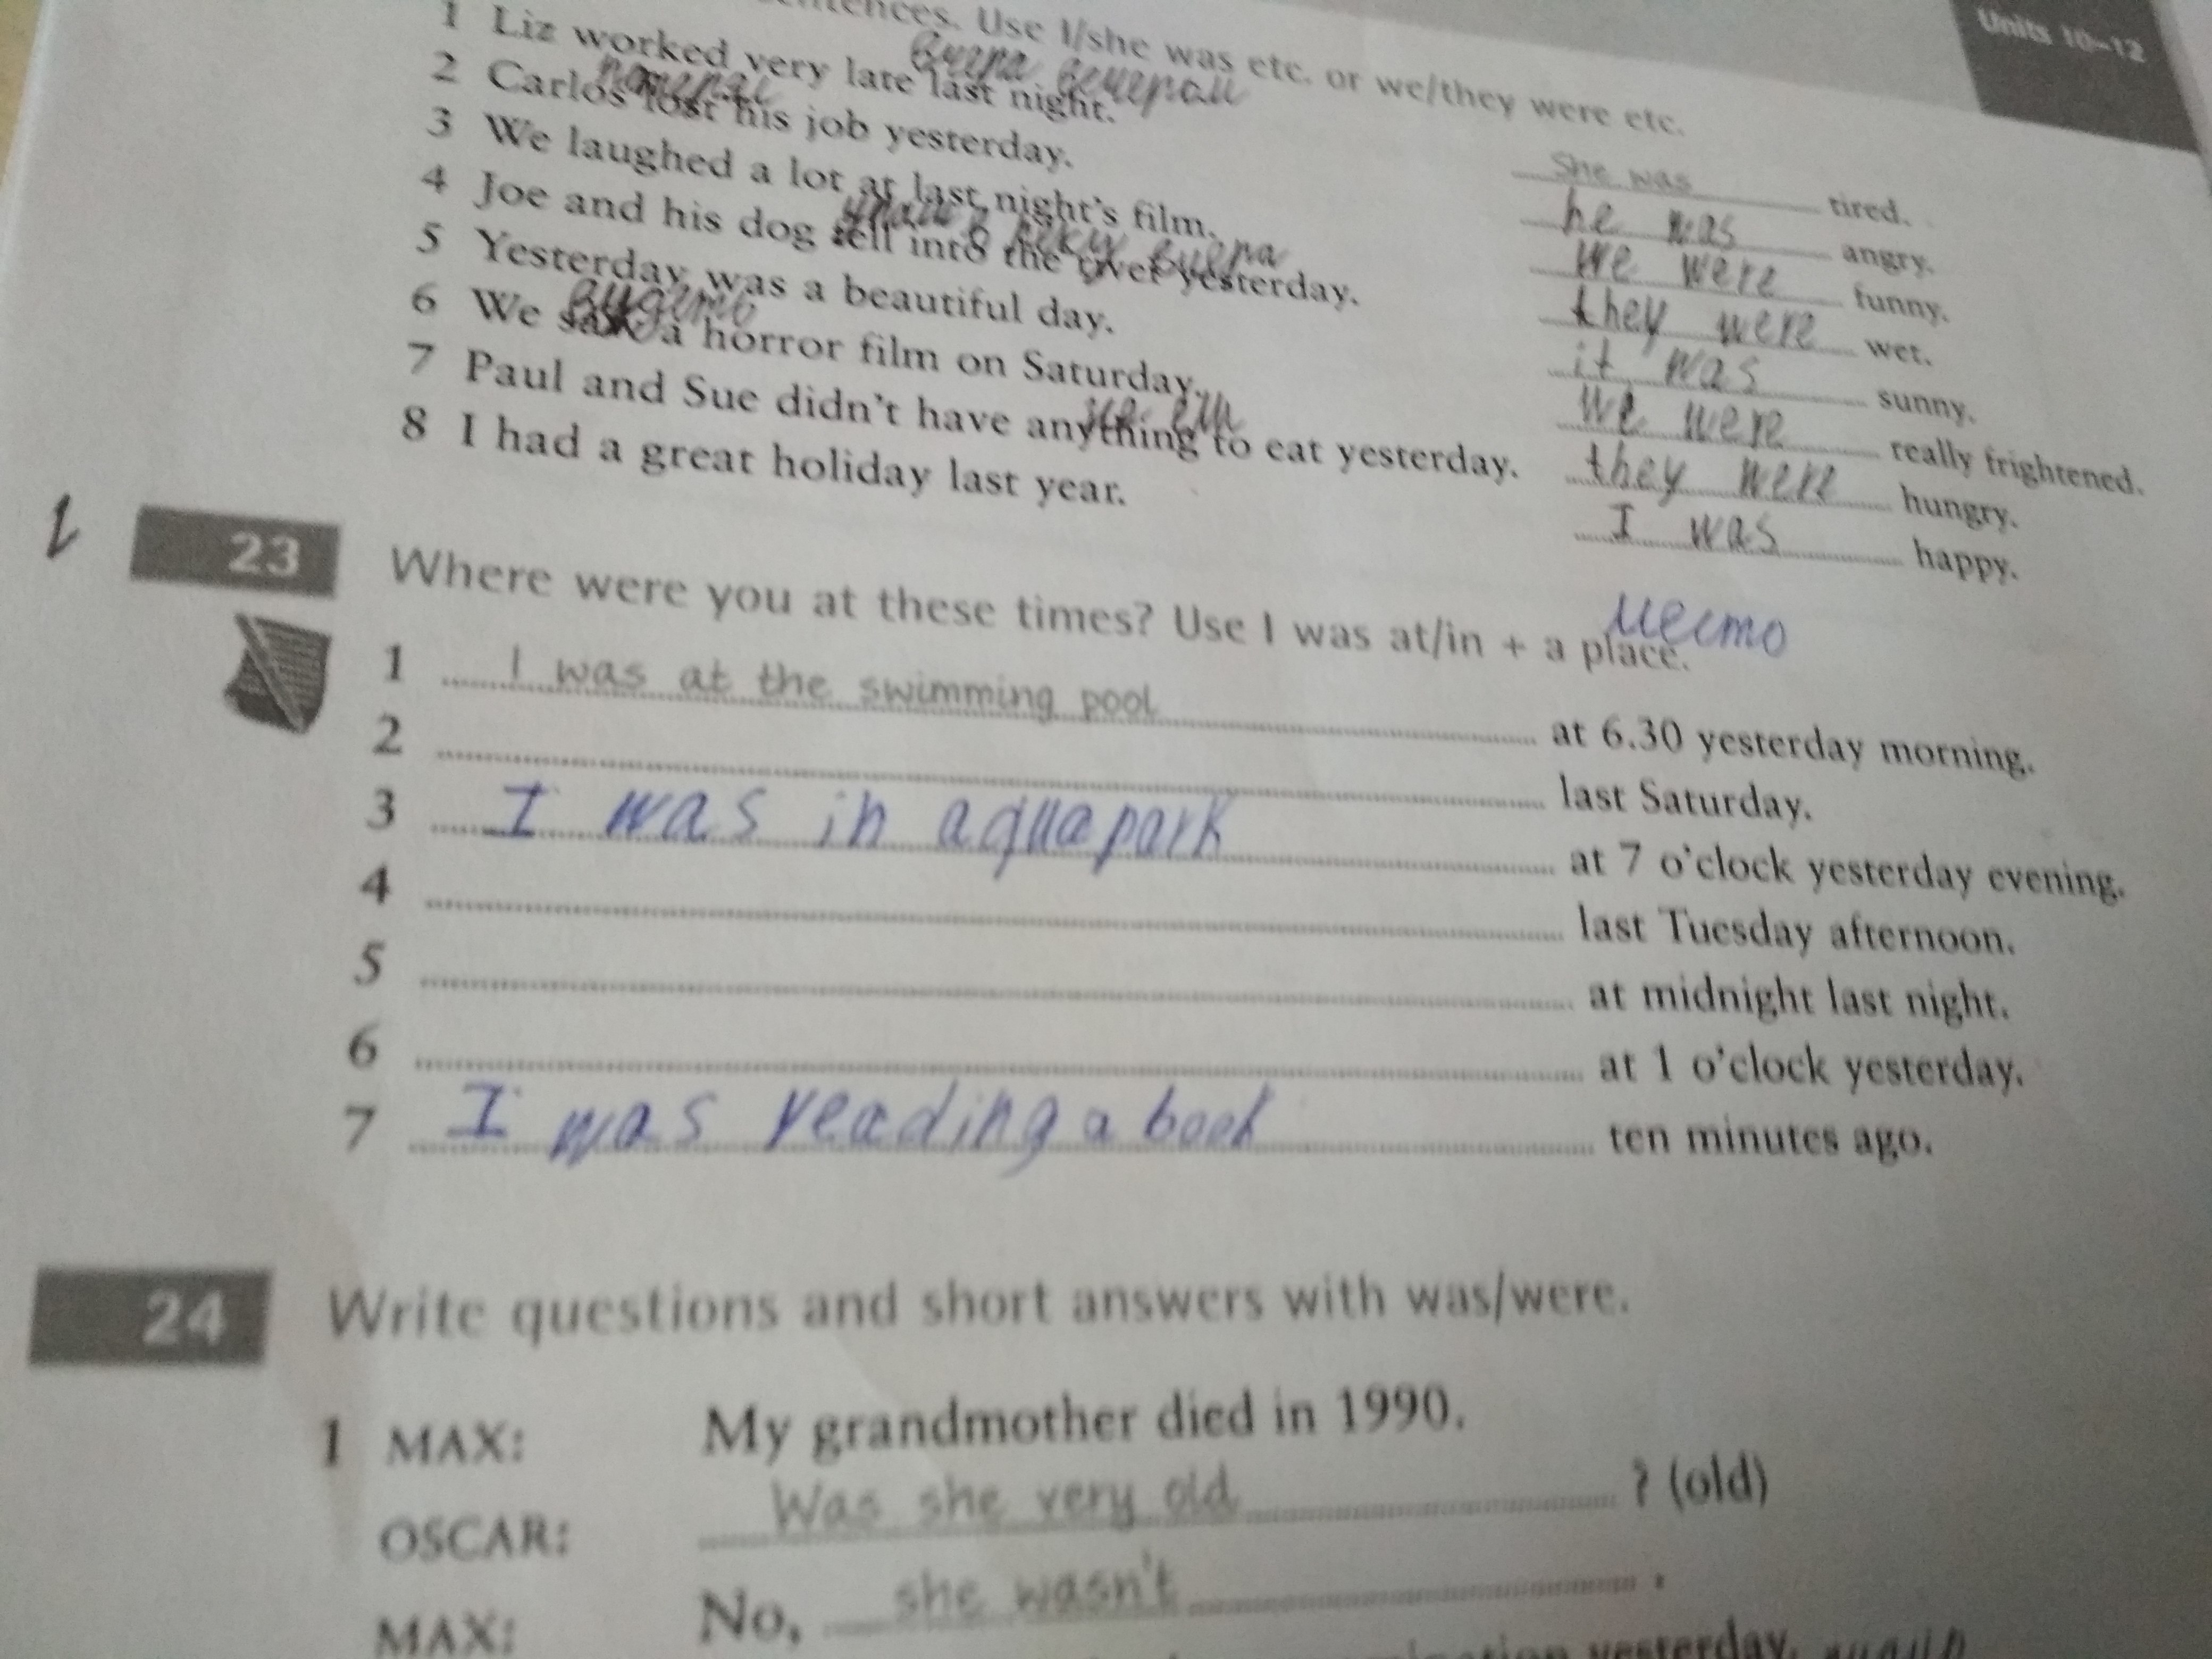 Units 10–12
sentences. Use I/she was etc. or we/they were etc.
вчера вечером
1 Liz worked very late last night. She was tired.
2 Carlos lost his job yesterday. he was angry.
3 We laughed a lot at last night's film. we were funny.
упали в реку вчера
4 Joe and his dog fell into the river yesterday. they were wet.
5 Yesterday was a beautiful day. it was sunny.
6 We saw a horror film on Saturday. we were really frightened.
7 Paul and Sue didn't have anything to eat yesterday. they were hungry.
8 I had a great holiday last year. I was happy.
23 Where were you at these times? Use I was at/in + a place.
место
1 I was at the swimming pool at 6.30 yesterday morning.
2 last Saturday.
3 I was in aquapark at 7 o'clock yesterday evening.
4 last Tuesday afternoon.
5 at midnight last night.
6 at 1 o'clock yesterday.
7 I was reading a book ten minutes ago.
24 Write questions and short answers with was/were.
1 MAX: My grandmother died in 1990.
OSCAR: Was she very old ? (old)
MAX: No, she wasn't .
yesterday.